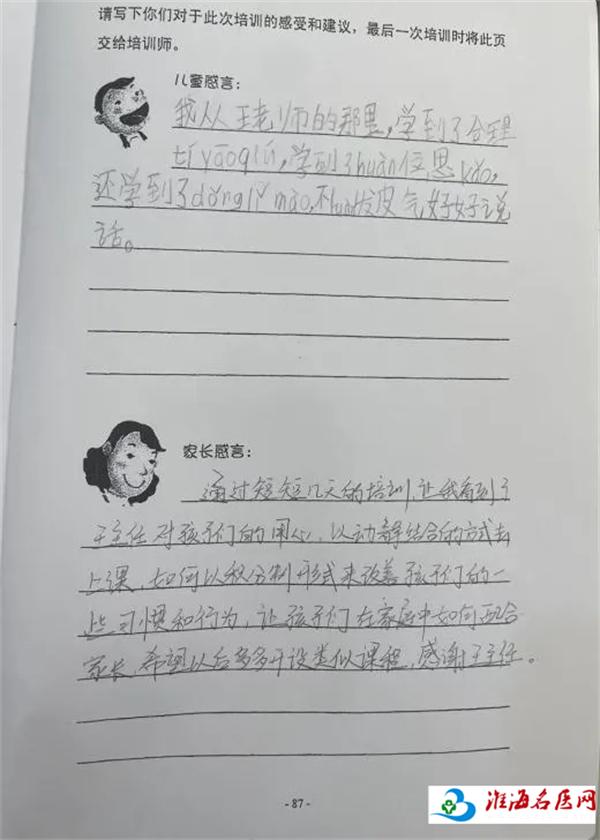 请写下你们对于此次培训的感受和建议，最后一次培训时将此页
交给培训师。
儿童感言：
我从王老师的那里，学到了合理
tí yāoqiú，学到了huàn位思kǎo，
还学到了dǒng lǐ mào，不发皮气好好说
话。
家长感言：
通过短短几天的培训，让我看到了
王主任对孩子们的用心，以动静结合的方式去
上课，如何以积分制形式来改善孩子们的一
些习惯和行为，让孩子们在家庭中如何配合
家长，希望以后多多开设类似课程，感谢王主任。
- 87 -
淮海名医网